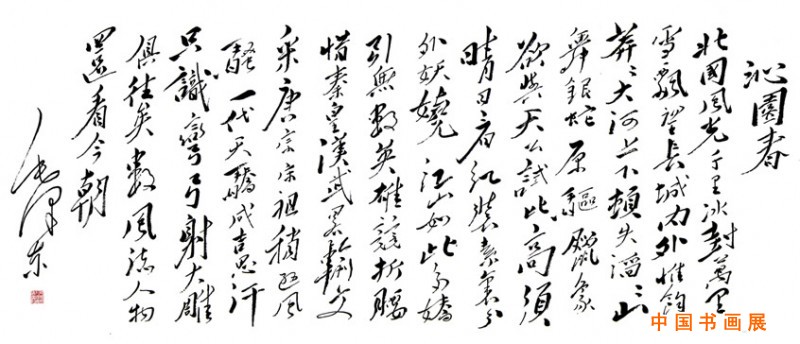 沁園春
北國風光千里冰封萬里
雪飄望長城内外惟餘
莽々大河上下頓失滔々山
舞銀蛇原驅臘象
欲與天公試比高須
晴日看紅裝素裹分
外妖嬈江山如此多嬌
引無數英雄競折腰
惜秦皇漢武略輸文
采唐宗宋祖稍遜風
騷一代天驕成吉思汗
只識彎弓射大雕
俱往矣數風流人物
還看今朝
毛澤东
中国书画展